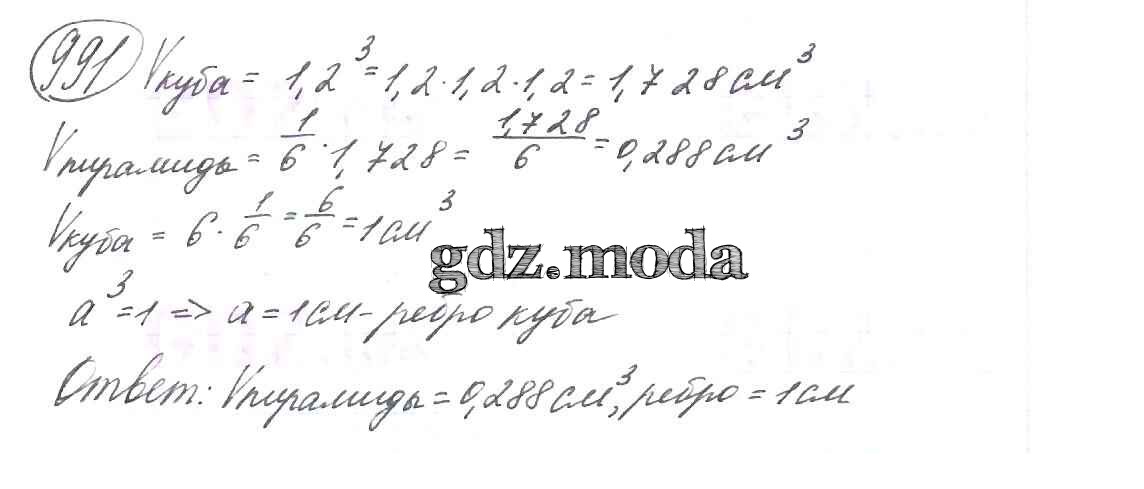 991 Vкуба = 1,2³ = 1,2·1,2·1,2 = 1,728 см³
Vпирамиды = 1/6 · 1,728 = 1,728/6 = 0,288 см³
Vкуба = 6 · 1/6 = 6/6 = 1 см³
gdz.moda
a³ = 1 => a = 1 см - ребро куба
Ответ: Vпирамиды = 0,288 см³, ребро = 1 см